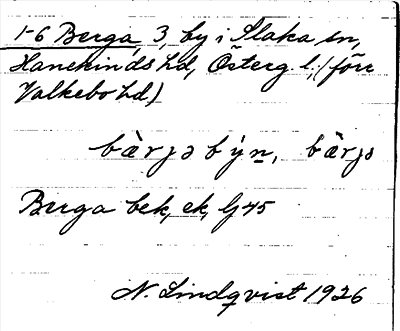 1-6 Berga 3, by i Slaka sn,
Hanekinds hd, Österg. l., (förr
Valkebo hd)
bærjə býn, bærjə
Berga bek, ek, Gj 45
N. Lindqvist 1926